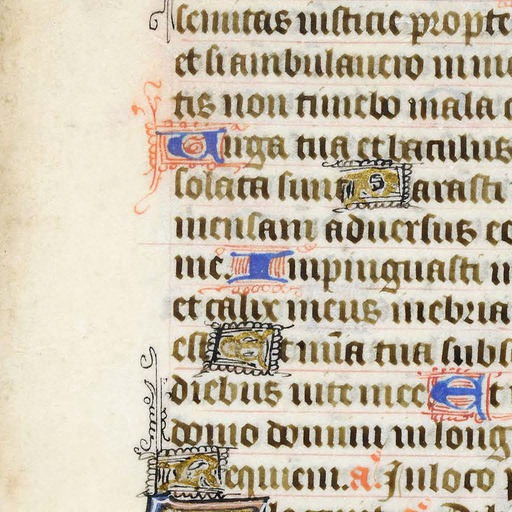 semitas iusticie propte
et si ambulauero in me
tis non timebo mala
Uirga tua et baculus
solata sunt Parasti
mensam aduersus eo
me. Impinguasti
et calix meus inebria
est Et mia tua subs
diebus uite mee Et
domo domini in long
Requiem. a. In loco